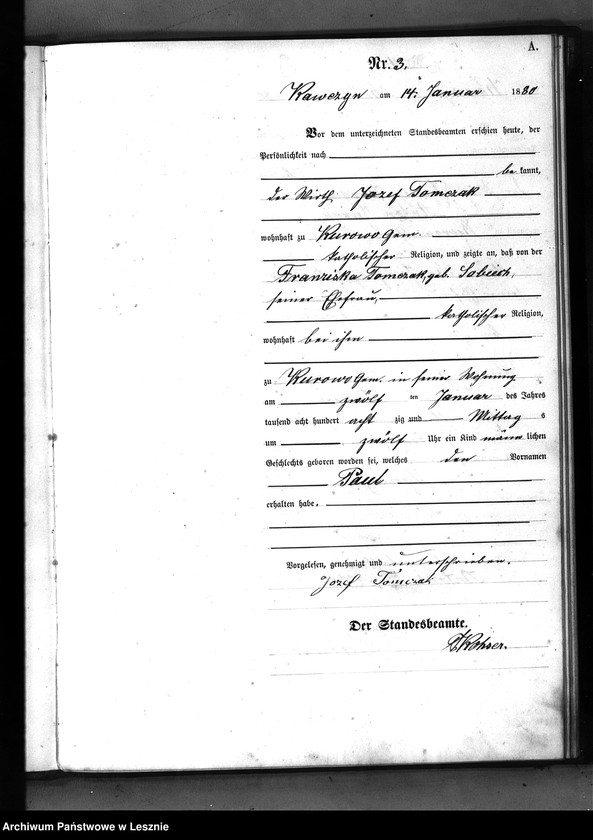 A.
Nr. 3.
Kawczyn am 14. Januar 1880
Vor dem unterzeichneten Standesbeamten erschien heute, der
Persönlichkeit nach
be kannt,
der Wirth Jozef Tomczak
wohnhaft zu Kurowo Gem.
katholischer Religion, und zeigte an, daß von der
Franziska Tomczak, geb. Sobiech,
seiner Ehefrau,
katholischer Religion,
wohnhaft bei ihm
zu Kurowo Gem. in seiner Wohnung
am zwölf ten Januar des Jahres
tausend acht hundert acht zig und Mittag s
um zwölf Uhr ein Kind männ lichen
Geschlechts geboren worden sei, welches den Vornamen
Paul
erhalten habe.
Vorgelesen, genehmigt und unterschrieben.
Jozef Tomczak
Der Standesbeamte.
Archiwum Państwowe w Lesznie